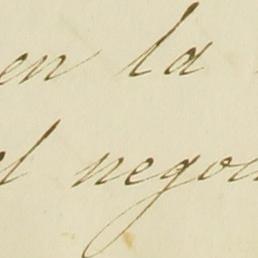 en la
el negoc